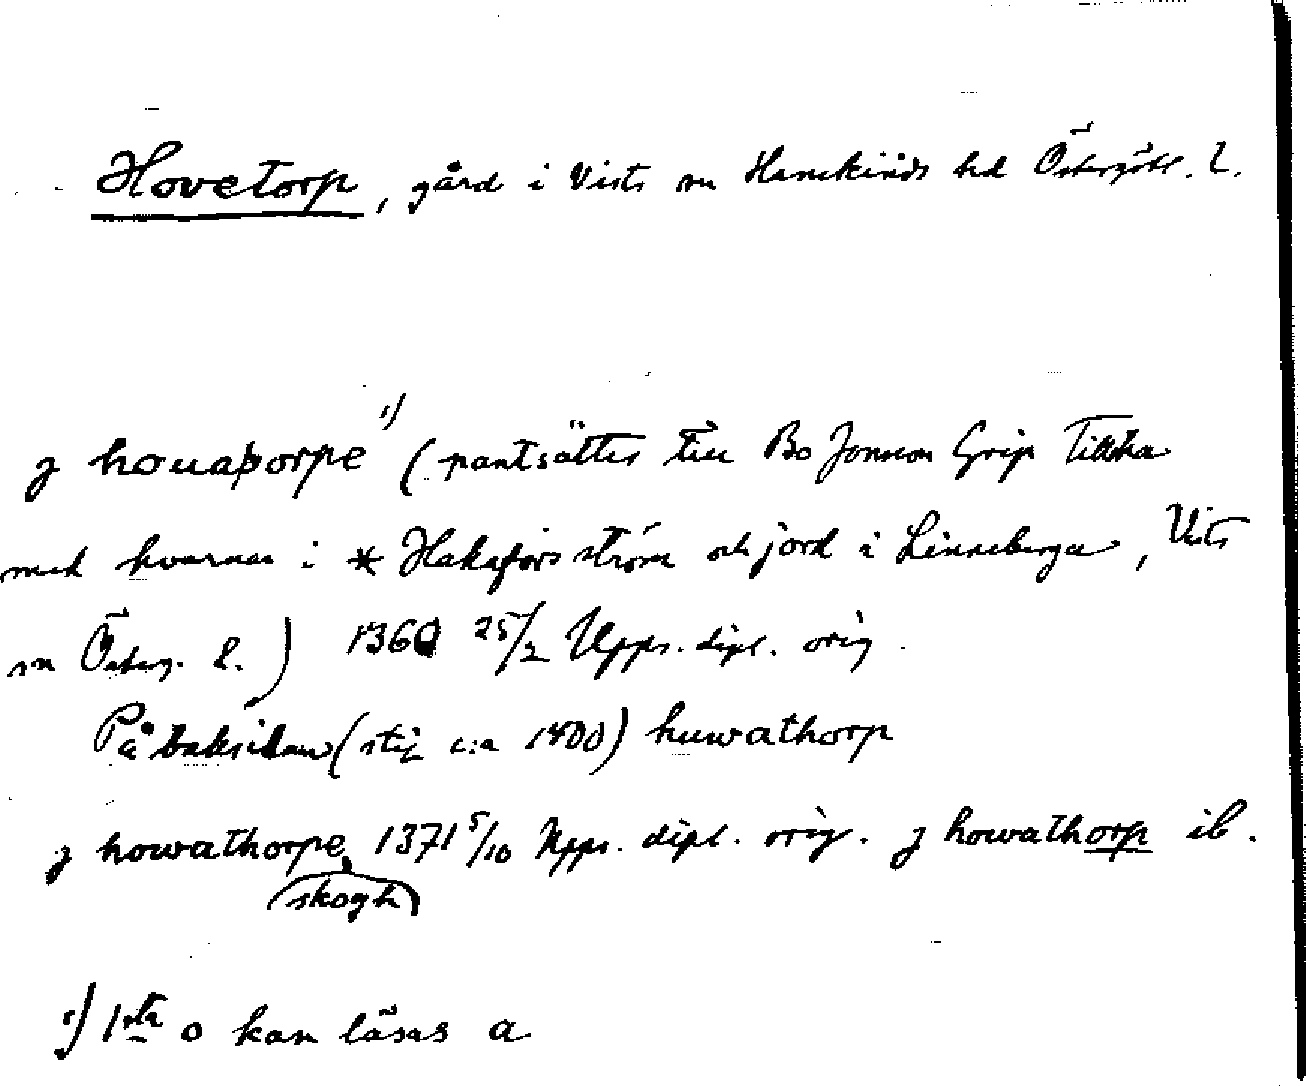 Hovetorp, gård i Vists sn Hanekinds hd Östergötl. l.
j houaþorpe 1) (pantsättes till Bo Jonsson Grip tillika
med kvarnar i * Hakafors ström och jord i Linneberga, Vists
sn Österg. l.) 1360 25/2 Upps. dipl. orig.
På baksidan (stil c:a 1400) huwathorp
j howathorpe 1371 5/10 Upps. dipl. orig. j howathorp ib.
skogh
1) 1sta o kan läsas a